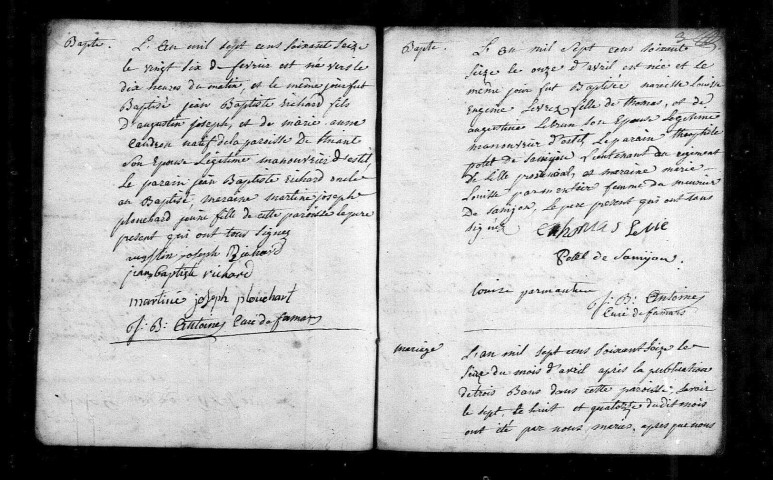 Bapte.
L'an mil sept cens soixant seize
le vingt six de fevrier est né vers le
dix heures du matin, et le même jour fut
Baptisé jean Baptiste richard fils
d'augustin joseph, et de marie anne
caudron natif de la paroisse de thiant
son Epouse Legitime manouvrier d'ostel
le parain jean Baptiste richard oncle
au Baptisé, maraine martine joseph
plouchard jeune fille de cette paroisse le pere
present qui ont tous signés
augustin joseph Richard
jean baptiste richard
martine joseph plouchart
J: B: Antoine Curé de famars
Bapte.
L'an mil sept cens soixant
seize le onze d'avril est née et le
même jour fut Baptisée narcisse Louise
Eugenie Levrez fille de thomas, et de
augustine Lebrun son Epouse Legitime
manouvrier d'ostel, Le parain theophile
potel de Lieutenant du regiment
de Lille provincial, et maraine marie
Louise parmentier femme du meunier
De le pere present qui ont sous
signés
thomas
Potel de
Louise parmentier
J: B: Antoine
Curé de famars
mariage
L'an mil sept cens soixant seize le
seize du mois d'avril après la publication
de trois Bans dans cette paroisse, savoir
le sept, le huit et quatorze dudit mois
ont été par nous mariés, après que nous